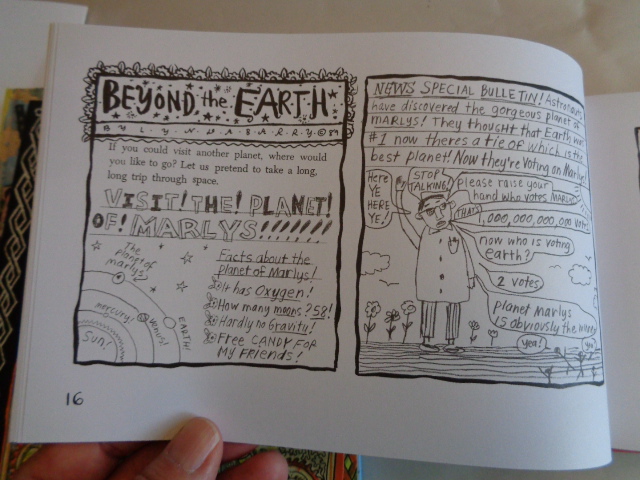 BEYOND the EARTH
BY LYNDA BARRY © 89
If you could visit another planet, where would
you like to go? Let us pretend to take a long,
long trip through space.
VISIT! THE! PLANET!
OF! MARLYS!!!!!!!
The planet of
marlys!
mercury!
Venus!
EARTH!
Sun!
Facts about the
planet of Marlys!
It has Oxygen!
How many moons? 58!
Hardly no Gravity!
Free CANDY FOR
MY Friends!
16
NEWS SPECIAL BULLETIN!
have discovered the gorgeous planet of
MARLYS! They thought that Earth was
#1 now theres a tie of which is the
best planet! Now they're Voting on Marlys!
Here
YE
HERE
YE!
STOP
TALKING!
please raise your
hand who votes MARLYS
THATS
1,000,000,000,000 votes
now who is voting
earth?
2 votes
planet Marlys
IS obviously the
yea!